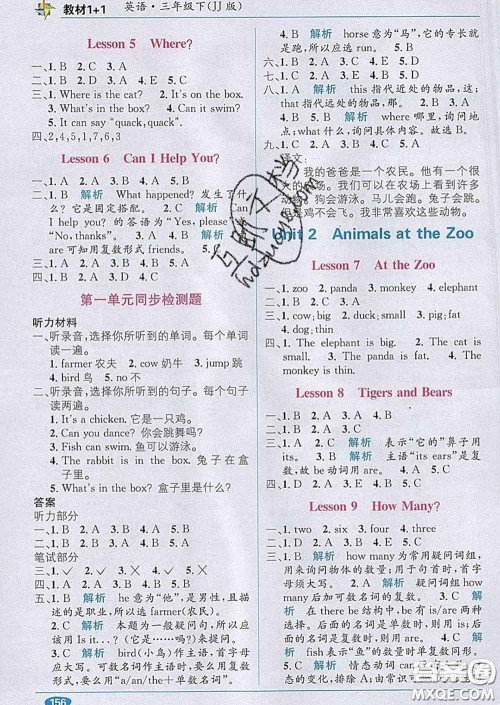 教材1+1 英语·三年级下(JJ版)
Lesson 5 Where?
一、1. B 2. C 3. A 4. B 5. A
二、1. B 2. D 3. A 4. E 5. C
三、1. Where is the cat? 2. It's on the box.
3. What's in the box? 4. Can it swim?
5. It can say "quack, quack".
四、2,4,5,1,7,6,3
Lesson 6 Can I Help You?
1. B 解析 What happened? 发生了什
么? 它是固定搭配。
的答语为 "Yes, please!/
No, thanks."
可知用复数形式 friends。
三、1. B 2. A 3. C
第一单元同步检测题
听力材料
一、听录音,选择你所听到的单词。每个单词
读一遍。
1. farmer 农夫 2. cow 奶牛 3. jump 跳
4. bird 鸟 5. no 不
二、听录音,选择你所听到的句子。每个句子
读两遍。
1. It's a chicken. 它是一只鸡。
2. Can you dance? 你会跳舞吗?
3. Fish can swim. 鱼可以游泳。
4. The rabbit is in the box. 兔子在盒
子里。
5. What's in the box? 盒子里是什么?
答案
听力部分
一、1. B 2. A 3. B 4. A 5. B
二、1. A 2. B 3. A 4. B 5. B
笔试部分
三、1. ✓ 2. × 3. ✓ 4. × 5. ✓
四、1. D 2. A 3. B 4. C 5. E
五、1. B 解析 he 意为"他",是男性,且描
述的是职业,所以选 farmer(农民)。
2. C 解析 本题为一般疑问句,所以应
用 Is it...? "它是……吗?"来提问。
3. C 解析 bird(小鸟)作主语,首字母
应大写。可数名词作主语时,要么用复数
形式,要么用"a/an/the+单数名词"。
156
horse is "may",它的专长
就是跑,所以应选 run。
六、1. B 2. C 3. A 4. E 5. D
七、1. B 2. A 3. D 4. C
八、1. A 解析 this 指代近处的物品,这;
that 指代远处的物品,那。
2. B 解析 where 哪里,询问地方地
点; what 什么,询问具体内容。故选 B。
3. B 4. A 5. B
译文:
我的爸爸是一个农民。他有一个很
大的农场。我们可以在农场上看到许多
动物。狗会游泳。马儿会跑。兔子会跳。
但是鸡不会飞。我非常喜欢这些动物。
Unit 2 Animals at the Zoo
Lesson 7 At the Zoo
一、1. zoo 2. panda 3. monkey 4. elephant
二、1. cow; big; 2. duck; small 3. pig; fat
4. dog; thin
三、1. The elephant is big. 2. The cat is
small. 3. The panda is fat. 4. The
monkey is thin.
Lesson 8 Tigers and Bears
一、1. B 2. C 3. A 4. B
二、1. B 2. A 3. C 解析 表示"它的"鼻子用
its。 4. B 解析 主语"its ears"是复
数,故 be 动词用 are。 5. C
三、1. A 2. D 3. C 4. B
Lesson 9 How Many?
一、1. two 2. six 3. four 4. many
二、1. B 解析 how many 为常用疑问词组,
用来询问物体的数量;用于句首时,首字
母须大写。 2. A 解析 疑问词组 how
many 后加可数名词的复数。 3. B 解
析 在 there be 结构中, be 有 is/are 两种
变换。后面的名词是单数时,则用 is;后
面的名词是复数时,则用 are。 4. B 解
析 fish 表示"鱼"的数量时单复数同形。
5. C 解析 情态动词 can